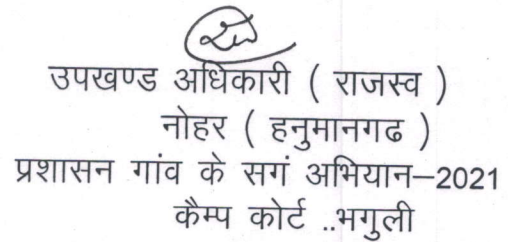 उपखण्ड अधिकारी ( राजस्व )
नोहर ( हनुमानगढ )
प्रशासन गांव के सगं अभियान–2021
कैम्प कोर्ट ..भगुली